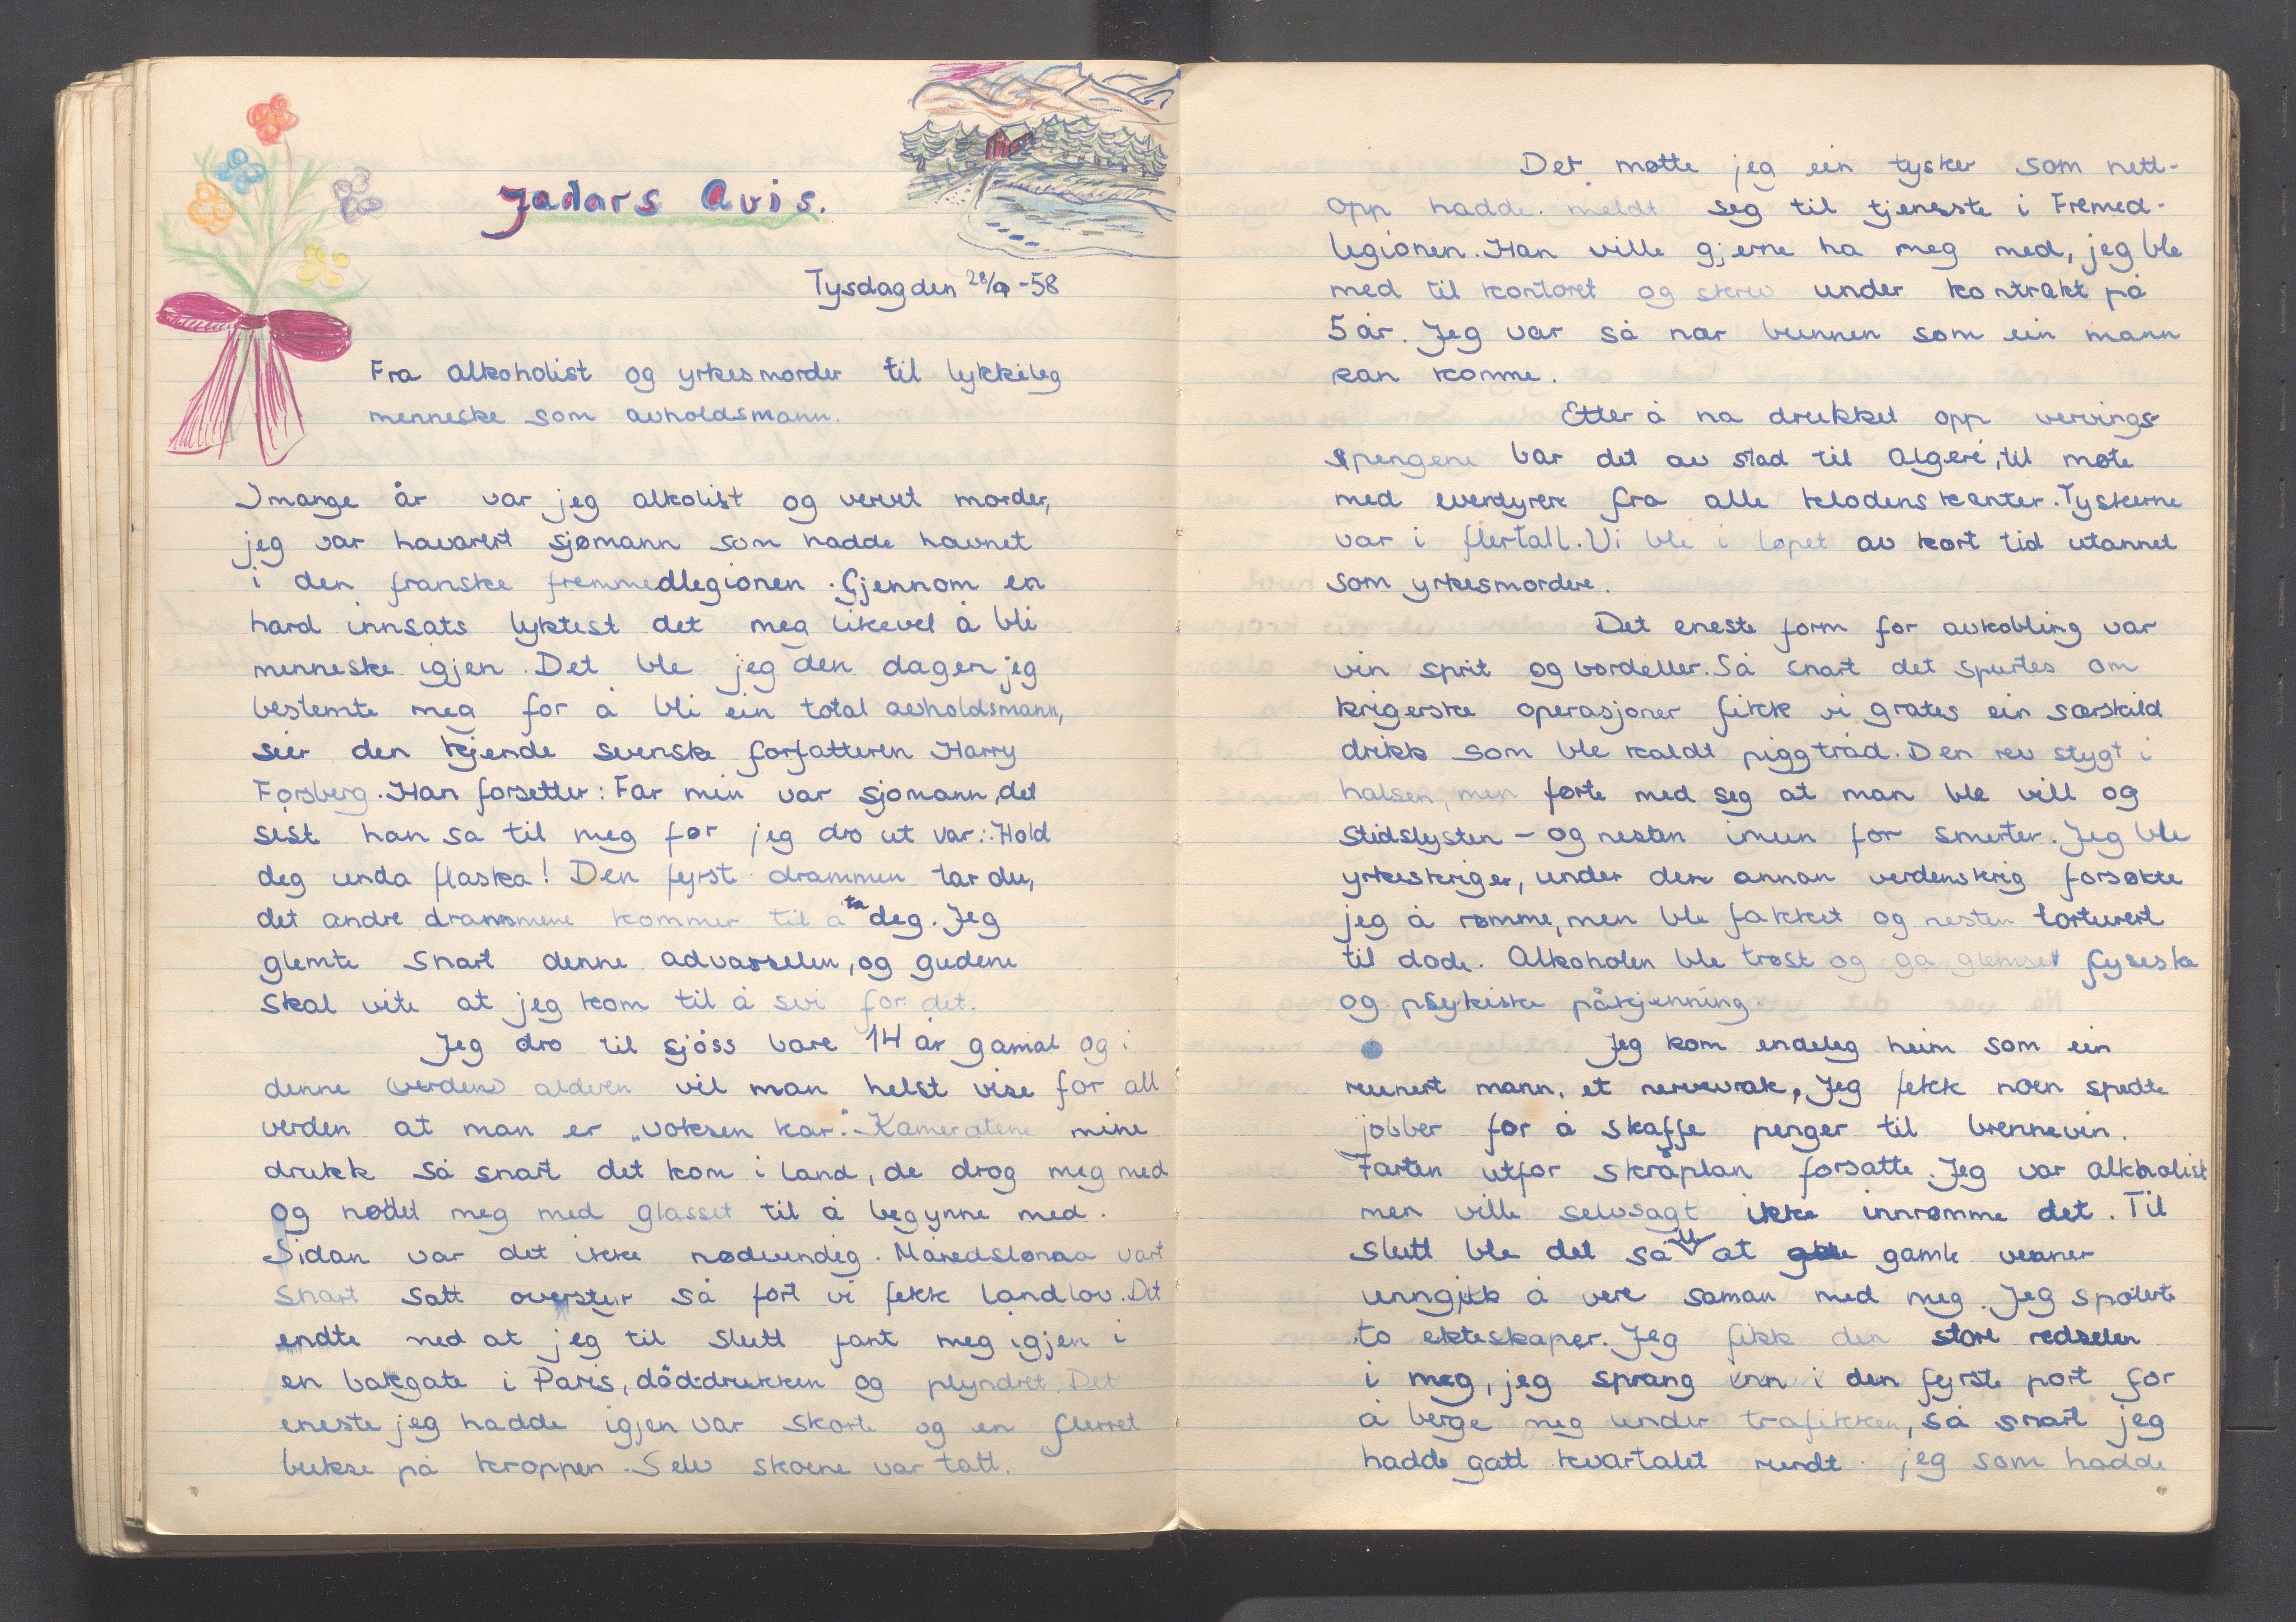 Jadars Avis.
Tysdag den 28/9 -58
Fra alkoholist og yrkesmorder til lykkeleg
menneske som avholdsmann.
I mange år var jeg alkolist og vervet morder,
jeg var havarert sjømann som hadde havnet
i den franske fremmedlegionen. Gjennom en
hard innsats lyktest det meg likevel å bli
menneske igjen. Det ble jeg den dagen jeg
bestemte meg for å bli ein total avholdsmann,
seier den kjende svenske forfatteren Harry
Forsberg. Han forsetter: Far min var sjømann, det
sist han sa til meg før jeg dro ut var: Hold
deg unda flaska! Den fyrst drammen tar du,
det andre drammene kommer til å ta deg. Jeg
glemte snart denne advarselen, og gudene
skal vite at jeg kom til å svi for det.
Jeg dro til sjöss bare 14 år gamal og i
denne (verden) alderen vil man helst vise for all
verden at man er „voksen kar". Kameratene mine
drukk så snart det kom i land, de drog meg med
og nødet meg med glasset til å begynne med.
Sidan var det ikke nødvendig. Månedslønna vart
snart satt overstyr så fort vi fekk landlov. Det
endte med at jeg til slutt fant meg igjen i
en bakgate i Paris, döddrukken og plyndret. Det
eneste jeg hadde igjen var skorte og en flerret
bukse på kroppen. Selv skoene var tatt.
Der møtte jeg ein tysker som nett-
opp hadde meldt seg til tjeneste i Fremed-
legionen. Han ville gjerne ha meg med, jeg ble
med til kontoret og skrev under kontrakt på
5 år. Jeg var så nær bunnen som ein mann
kan komme.
Etter å ha drukket opp vervings-
spengene bar det av stad til Algeri, til møte
med eventyrere fra alle klodens kanter. Tyskerne
var i flertall. Vi ble i løpet av kort tid utannet
som yrkesmordere.
Det eneste form for avkobling var
vin sprit og bordeller. Så snart det spurtes om
krigerske operasjoner fikk vi grates ein særskild
drikk som ble kaldt piggtråd. Den rev stygt i
halsen, men førte med seg at man ble vill og
stidslysten – og nesten imun for smerter. Jeg ble
yrkeskriger, under den annan verdenskrig forsøkte
jeg å rømme, men ble fakket og nesten torturert
til døde. Alkoholen ble trøst og ga glemsel fyseska
og psykiska påkjenning.
Jeg kom endeleg heim som ein
ruinert mann, et nervevrak, Jeg fekk noen spedte
jobber for å skaffe penger til brennevin.
Farten utfor skråplan forsatte. Jeg var alkholist
men ville selvsagt ikke innrømme det. Til
slutt ble det så ille at gamle venner
unngikk å vere saman med meg. Jeg spolerte
to ekteskaper. Jeg fikk den store redselen
i meg, jeg sprang inn i den fyrste port for
å berge meg under trafikken, så snart jeg
hadde gått kvartalet rundt. jeg som hadde